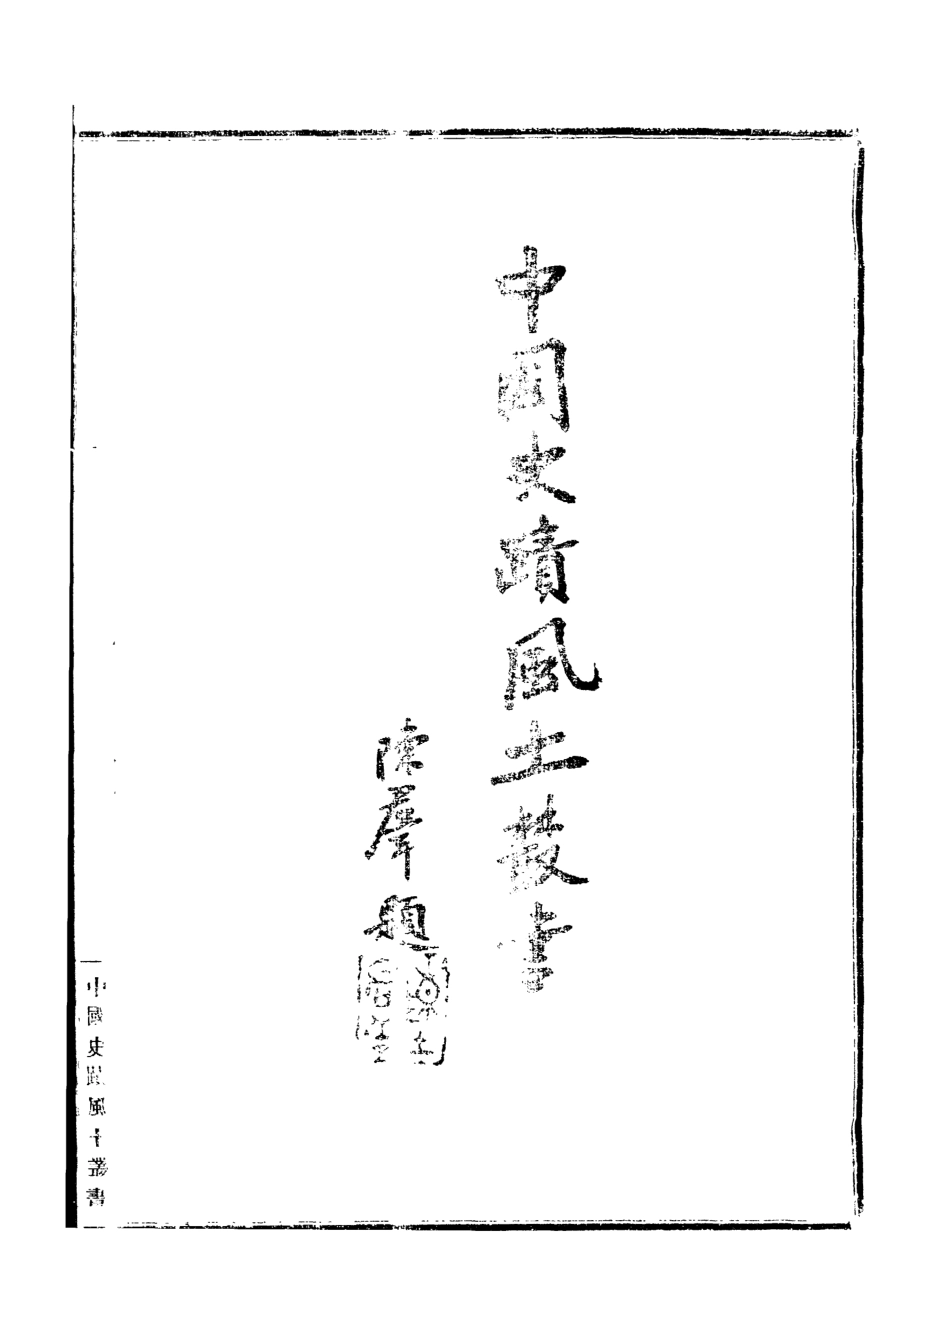 中國史蹟風土叢書
陳羣題
中國史蹟風土叢書